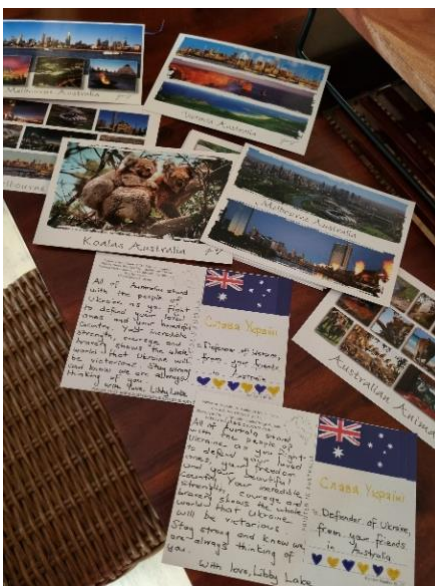 Melbourne Australia
Victoria Australia
Melbourne
Koalas Australia
Melbourne Australia
Australian Anima
All of Australia stand
with the people of
Ukraine as you fight
to defend your loved
ones and your beautiful
country. Your incredible
strength, courage and
bravery shows the whole
world that Ukraine will
be victorious. Stay strong
and know we are always
thinking of you.
With love, Libby Lake
Слава Україні
Defender of Ukraine,
from your friends
in Australia
All of Australia stand
with the people of
Ukraine as you fight
to defend your loved
ones, your freedom
and your beautiful
country. Your incredible
strength, courage and
bravery shows the whole
world that Ukraine
will be victorious
Stay strong and know we
are always thinking of
you.
With love, Libby Lake
Слава Україні
To: Defender of Ukraine,
from your friends
in Australia